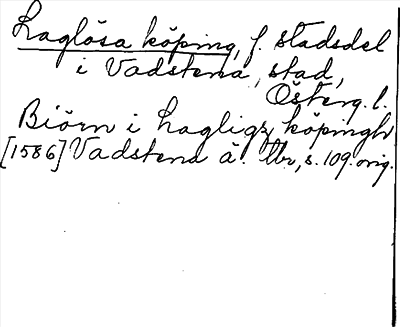 Laglösa köping, f. stadsdel
i Vadstena, stad,
Österg. l.
Biörn i Lagligz köpingh
[1586] Vadstena ä. tbr, s. 109. orig.